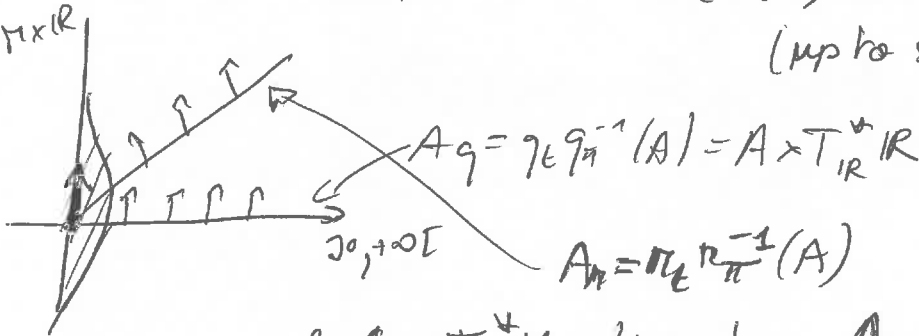 M×ℝ
(up to
A_q = q_t q_π^{-1}(A) = A × T^*_ℝ ℝ
]0,+∞[
A_r = r_t r_π^{-1}(A)